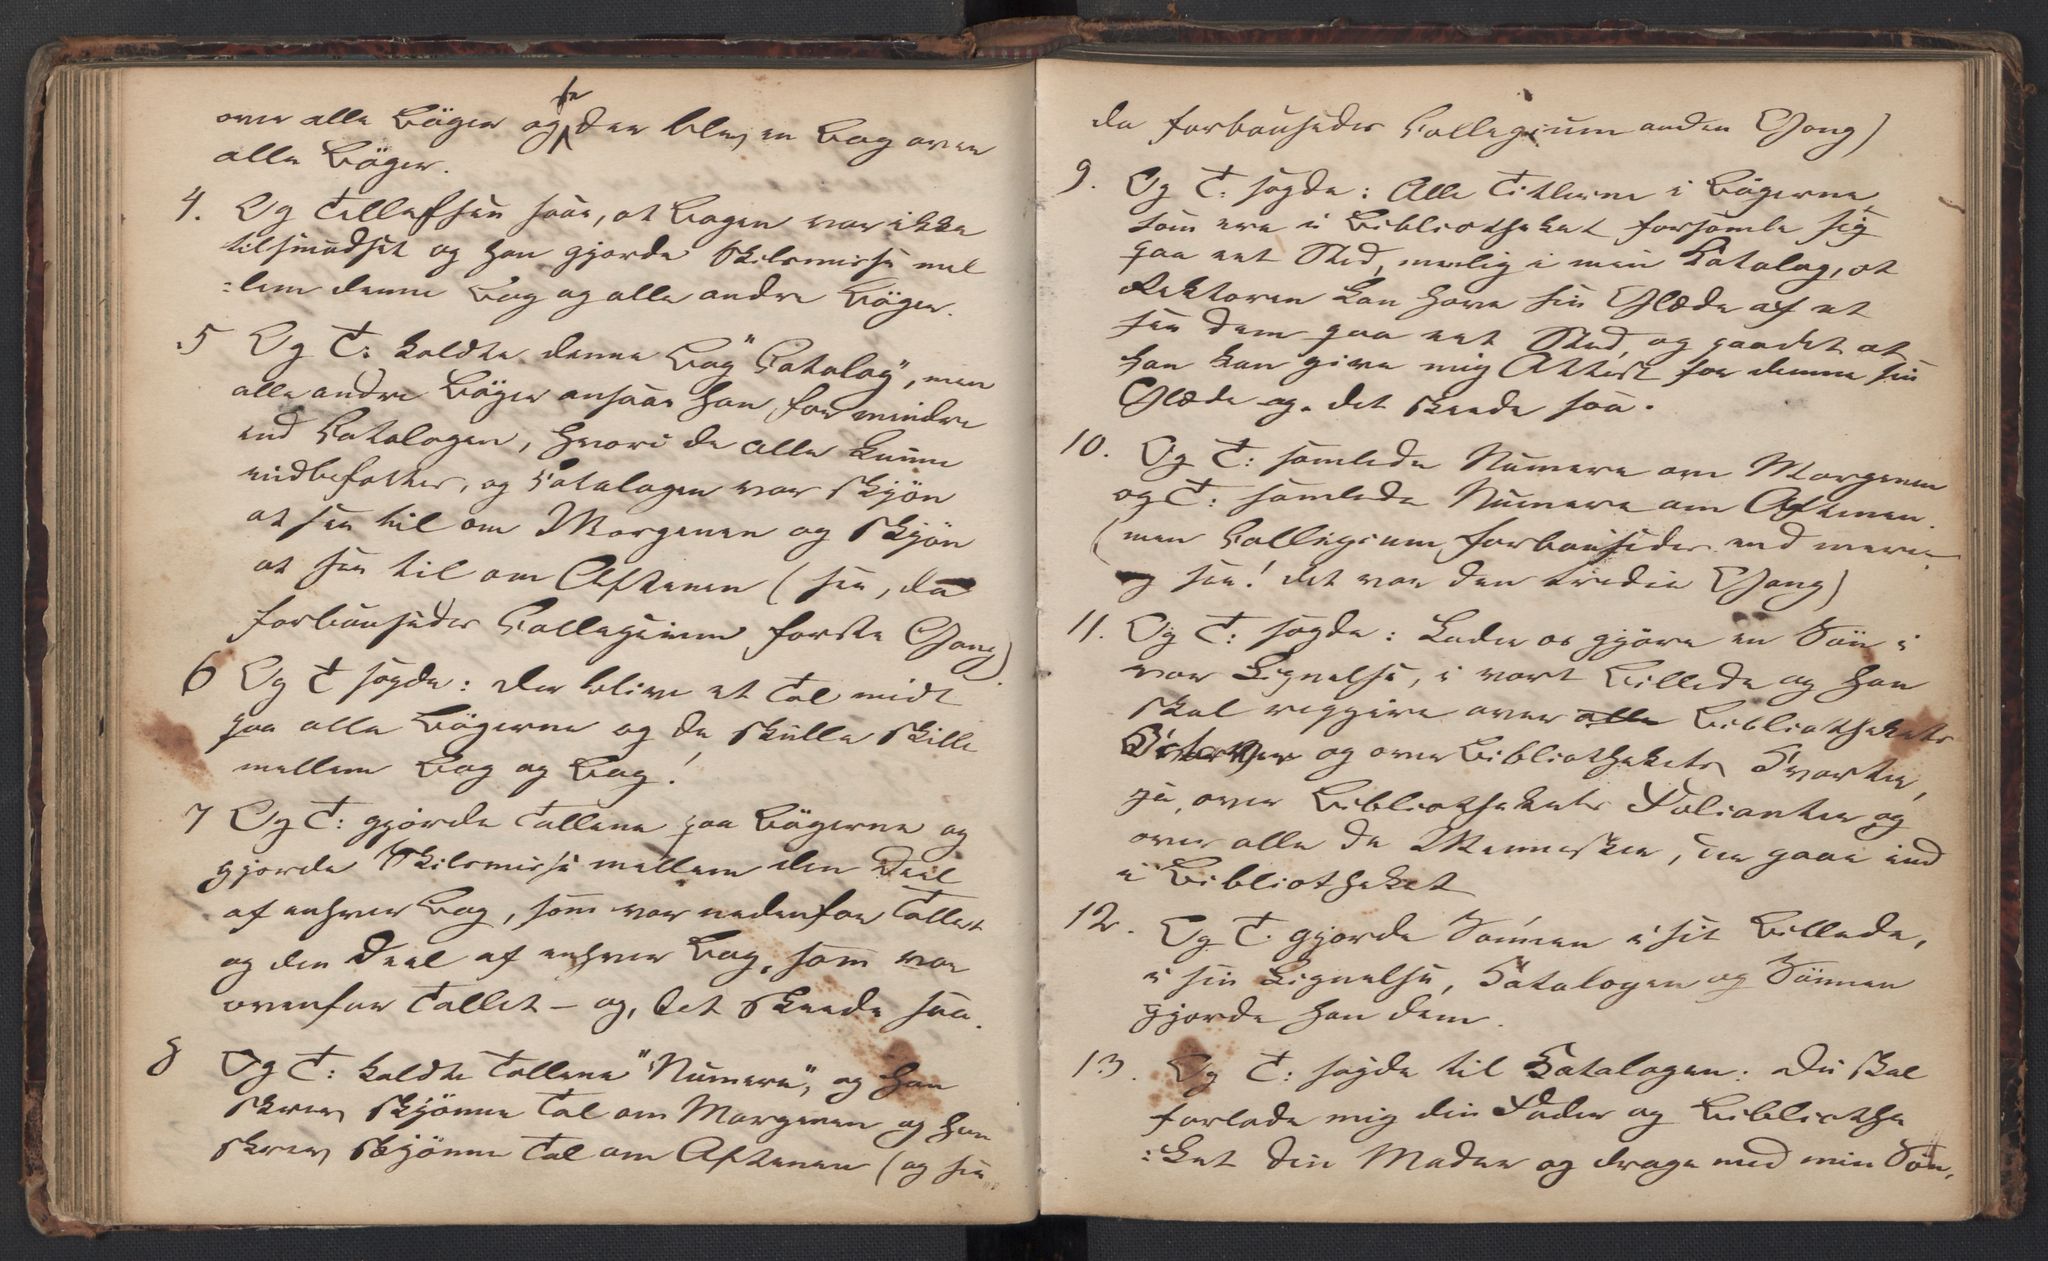 over alle Bøger og se der blev en Bog over
alle Bøger.
4. Og Tellefsen saae, at Bogen var ikke
tilsmudset og han gjorde Skilsmisse mel
-lem denne Bog og alle andre Bøger.
5 Og T: kaldte denne Bog "Catalog", men
alle andre Bøger ansaae han for mindre
end Catalogen, hvori de alle kunne
indbefattes, og Catalogen var skjøn
at see til om Morgenen og skjøn
at see til om Aftenen (see, da
forbausedes Collegium første Gang)
6 Og T sagde: Der blive et Tal midt
paa alle Bøgerne og de skulle skille
mellem Bog og Bog!
7 Og T: gjorde Tallene paa Bøgerne og
gjorde Skilsmisse mellem den Deel
af enhver Bog, som var nedenfor Tallet
og den Deel af enhver Bog, som var
ovenfor Tallet – og, det skeede saa.
8 Og T: kaldte Tallene "Numere", og han
skrev skjønne Tal om Morgenen og han
skrev skjønne Tal om Aftenen (og see
da forbausedes Collegium anden Gang)
9. Og T: sagde: Alle Titlerne i Bøgerne,
som ere i Bibliotheket forsamle sig
paa eet Sted, nemlig i min Katalog, at
Rektoren kan have sin Glæde af at
see dem paa eet Sted, og paadet at
han kan give mig Attest for denne sin
Glæde og. det skeede saa.
10. Og T: samlede Numere om Morgenen
og T: samlede Numere om Aftenen.
(men Collegium forbausedes end mere
og see! det var den tredie Gang)
11. Og T: sagde: Lader os gjøre en Søn i
vor Lignelse, i vort Billede og han
skal reggjere over alle Bibliothekets
Octaver og over Bibliothekets Qvarter,
ja, over Bibliothekets Folianter og
over alle de Mennesker, der gaae ind
i Bibliotheket
12. Og T. gjorde Sønnen i sit Billede,
i sin Lignelse, Catalogen og Sønnen
gjorde han dem.
13. Og T: sagde til Katalogen: Du skal
forlade mig din Fader og Bibliothe
-ket din Moder og drage med min Søn,